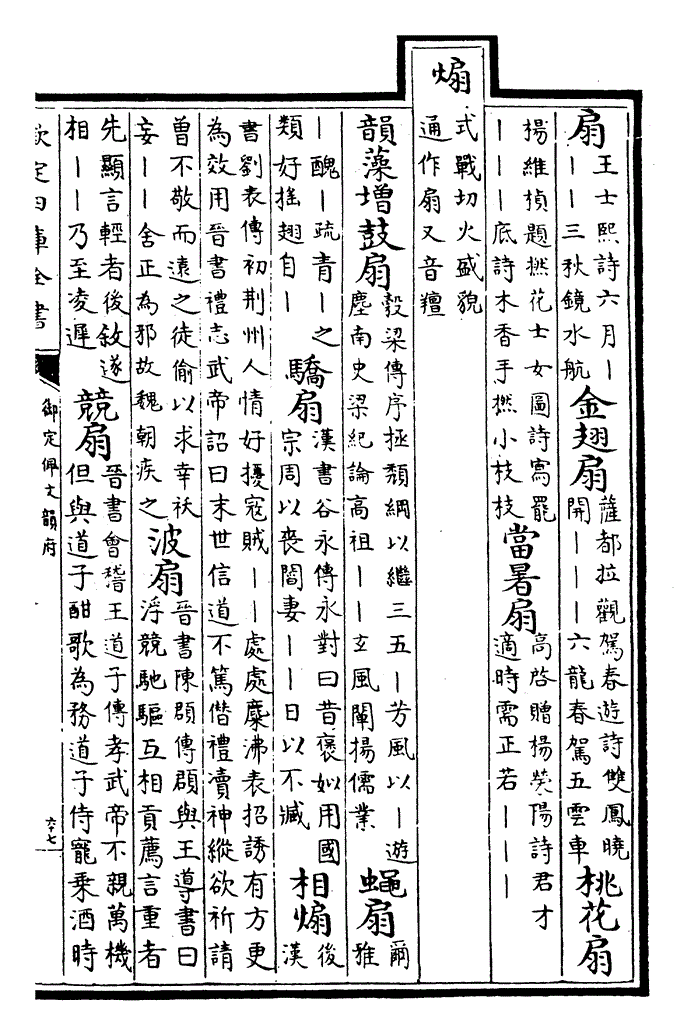 扇
王士熙詩六月丨
丨丨三秋鏡水航
金翅扇
薩都拉觀駕春遊詩雙鳳曉
開丨丨丨六龍春駕五雲車
桃花扇
楊維楨題撚花士女圖詩寫罷
丨丨丨底詩木香手撚小枝枝
當暑扇
高啓贈楊滎陽詩君才
適時需正若丨丨丨
煽
式戰切火盛貌
通作扇又音羶
韻藻增鼓扇
榖梁傳序拯頽綱以繼三五丨芳風以丨遊
塵南史梁紀論高祖丨丨玄風闡揚儒業
蝿扇
爾
雅
丨醜丨疏青丨之
類好揺翅自丨
驕扇
漢書谷永傳永對曰昔褒姒用國
宗周以丧閻妻丨丨日以不臧
相煽
後
漢
書劉表傳初荆州人情好擾寇賊丨丨處處麋沸表招誘有方更
為效用晉書禮志武帝詔曰末世信道不篤僭禮瀆神縱欲祈請
曽不敬而遠之徒偷以求幸祅
妄丨丨舍正為邪故魏朝疾之
波扇
晉書陳頵傳頵與王導書曰
浮競馳驅互相貢薦言重者
先顯言輕者後敘遂
相丨丨乃至凌遲
競扇
晉書會稽王道子傳孝武帝不親萬機
但與道子酣歌為務道子侍寵乗酒時
欽定四庫全書
御定佩文韻府
六十七